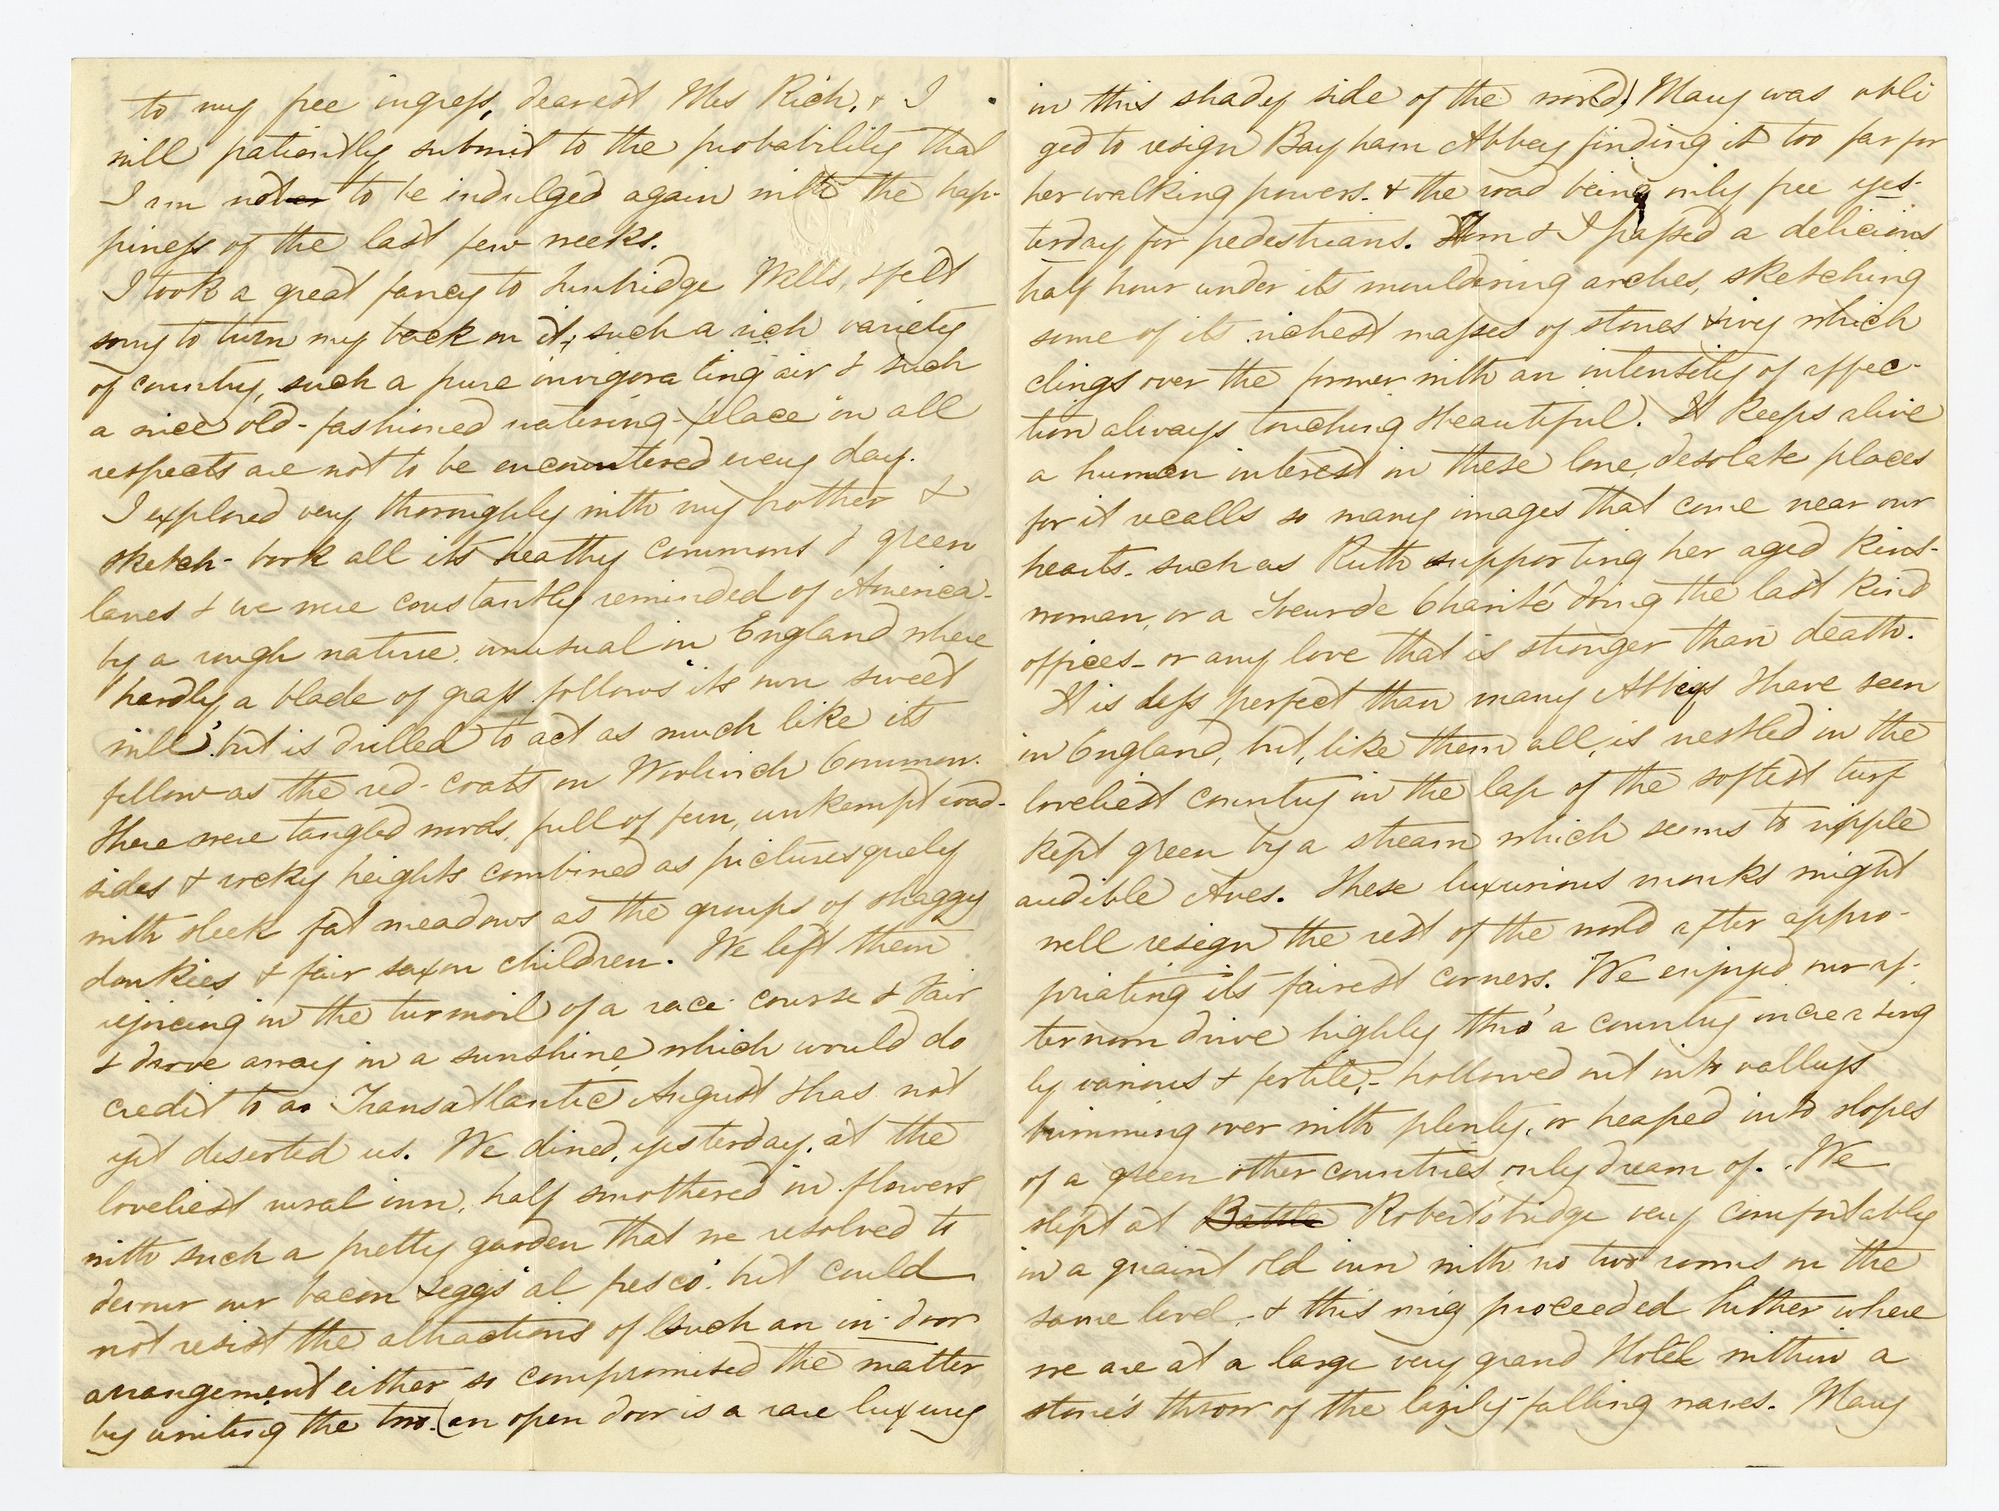 to my free ingress, dearest Mrs Rich, & I
will patiently submit to the probability that
I am not to be indulged again with the hap-
piness of the last few weeks.
I took a great fancy to Tunbridge Wells, & felt
sorry to turn my back on it; such a rich variety
of country, such a pure invigorating air & such
a nice old-fashioned watering-place in all
respects are not to be encountered every day.
I explored very thoroughly with my brother &
sketch-book all its heathy commons & green
lanes & we were constantly reminded of America-
by a rough nature, unusual in England where
"hardly a blade of grass follows its own sweed
will", but is drilled to act as much like its
fellow as the red-coats on Woolwich Common.
There were tangled woods, full of fern, unkempt road-
sides & rocky heights combined as picturesquely
with sleek fat meadows as the groups of shaggy
donkies & fair saxon children. We left them
rejoicing in the turmoil of a race course & Fair
& drove away in a sunshine which would do
credit to a Transatlantic August & has not
yet deserted us. We dined, yesterday, at the
loveliest rural inn, half smothered in flowers
with such a pretty garden that we resolved to
devour our bacon & eggs "al fresco" but could
not resist the attractions of such an in-door
arrangement either so compromised the matter
by uniting the two. (an open door is a rare luxury
in this shady side of the world) Mary was obli
ged to resign Bayham Abbey finding it too far for
her walking powers- & the road being only free yes-
terday for pedestrians. Tom & I passed a delicious
half hour under its mouldering arches, sketching
some of its richest masses of stones & ivy which
clings over the former with an intensity of affec-
tion always touching & beautiful. It keeps alive
a human interest in these lone, desolate places
for it recalls so many images that come near our
hearts- such as Ruth supporting her aged kins-
woman, or a Soeur de Charité doing the last kind
offices- or any love that is stronger than death.
It is less perfect than many Abbeys I have seen
in England, but, like them all, is nestled in the
loveliest country in the lap of the softest turf
kept green by a stream which seems to ripple
audible Aves. These luxurious monks might
well resign the rest of the world after appro-
priating its fairest corners. We enjoyed our af-
ternoon drive highly thro' a country increasing
ly various & fertile,- hollowed out into valleys
brimming over with plenty, or heaped into slopes
of a green other countries only dream of. We
slept at Battle Robertsbridge very comfortably
in a quaint old inn with no two rooms on the
same level,- & this mng proceeded hither where
we are at a large very grand Hotel within a
stone's throw of the lazily-falling waves. Mary